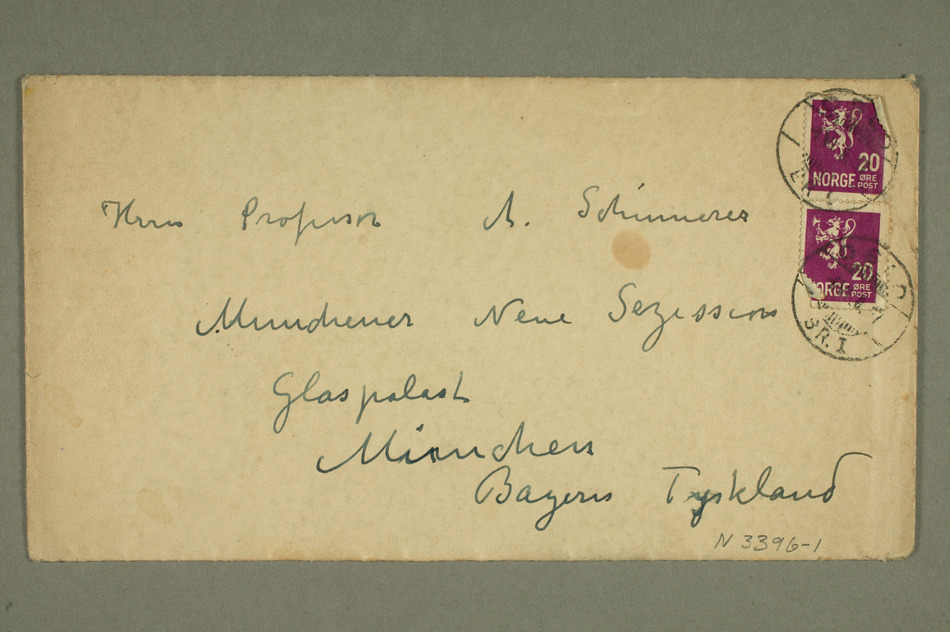 20
NORGE ØRE POST
20
NORGE ØRE POST
BR. I
Herrn Professor A. Schinnerer
Münchener Neue Sezession
Glaspalast
München
Bayern Tyskland
N 3396-1